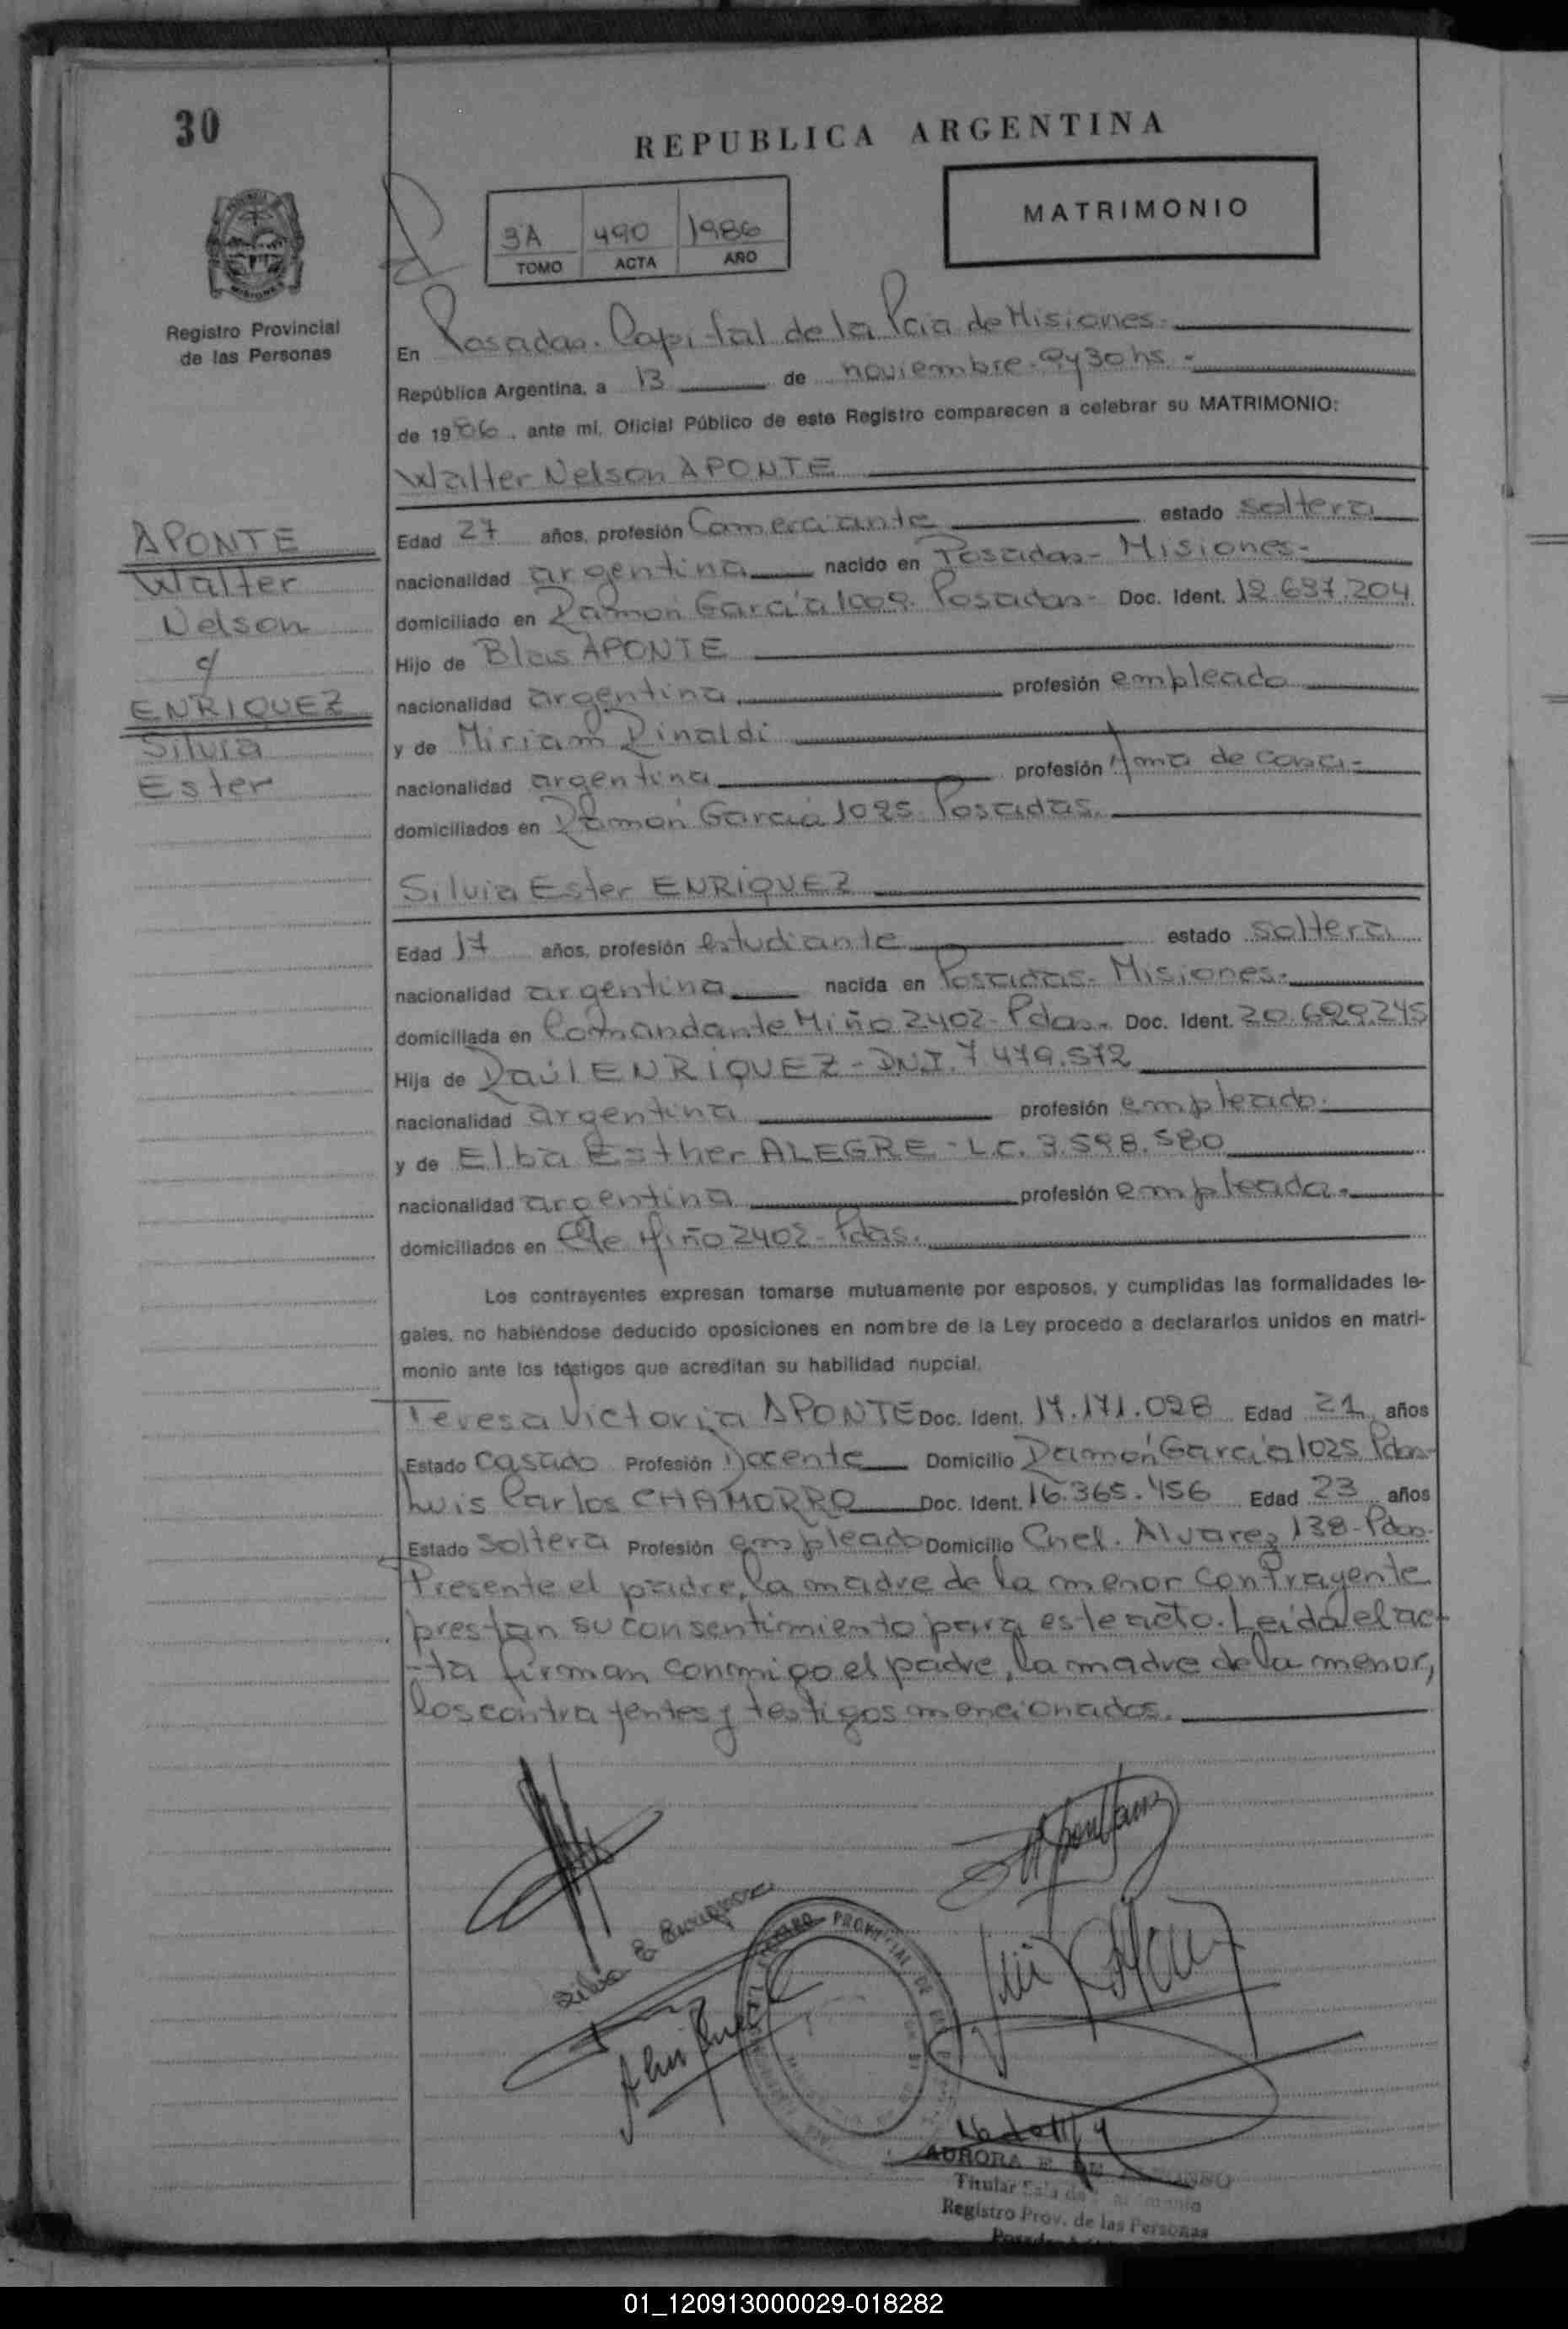 30
REPUBLICA ARGENTINA
MATRIMONIO
3A 490 1986
TOMO ACTA AÑO
Registro Provincial
de las Personas
En Posadas. Capital de la Pcia de Misiones.
República Argentina, a 13 de noviembre. 9y30hs.
de 1986, ante mí, Oficial Público de este Registro comparecen a celebrar su MATRIMONIO:
Walter Nelson APONTE
APONTE
Walter
Nelson
c/
ENRIQUEZ
Silvia
Ester
Edad 27 años, profesión Comerciante estado soltero
nacionalidad argentina nacido en Posadas- Misiones-
domiciliado en Ramón García 1009. Posadas- Doc. Ident. 12.637.204
Hijo de Blas APONTE
nacionalidad argentina profesión empleado
y de Miriam Rinaldi
nacionalidad argentina profesión Ama de casa-
domiciliados en Ramón García 1025. Posadas.
Silvia Ester ENRIQUEZ
Edad 17 años, profesión estudiante estado soltera
nacionalidad argentina nacida en Posadas- Misiones-
domiciliada en Comandante Miño 2402- Pdas. Doc. Ident. 20.629.245
Hija de Raúl ENRIQUEZ - DNI. 7.479.572
nacionalidad argentina profesión empleado.
y de Elba Esther ALEGRE - L.C. 3.598.580
nacionalidad argentina profesión empleada.
domiciliados en Cte Miño 2402- Pdas.
Los contrayentes expresan tomarse mutuamente por esposos, y cumplidas las formalidades le-
gales, no habiéndose deducido oposiciones en nombre de la Ley procedo a declararlos unidos en matri-
monio ante los testigos que acreditan su habilidad nupcial.
Teresa Victoria APONTE Doc. Ident. 17.171.028 Edad 21 años
Estado casado Profesión Docente Domicilio Ramón García 1025 Pdas-
Luis Carlos CHAMORRO Doc. Ident. 16.365.456 Edad 23 años
Estado soltera Profesión empleado Domicilio Cnel. Alvarez 138- Pdas.
Presente el padre, la madre de la menor contrayente
prestan su consentimiento para este acto. Leída el ac-
-ta firman conmigo el padre, la madre de la menor,
los contrayentes y testigos mencionados.
Silvia E Enriquez
AURORA E. DE
Titular Sala de
Registro Prov. de las Personas
01_120913000029-018282